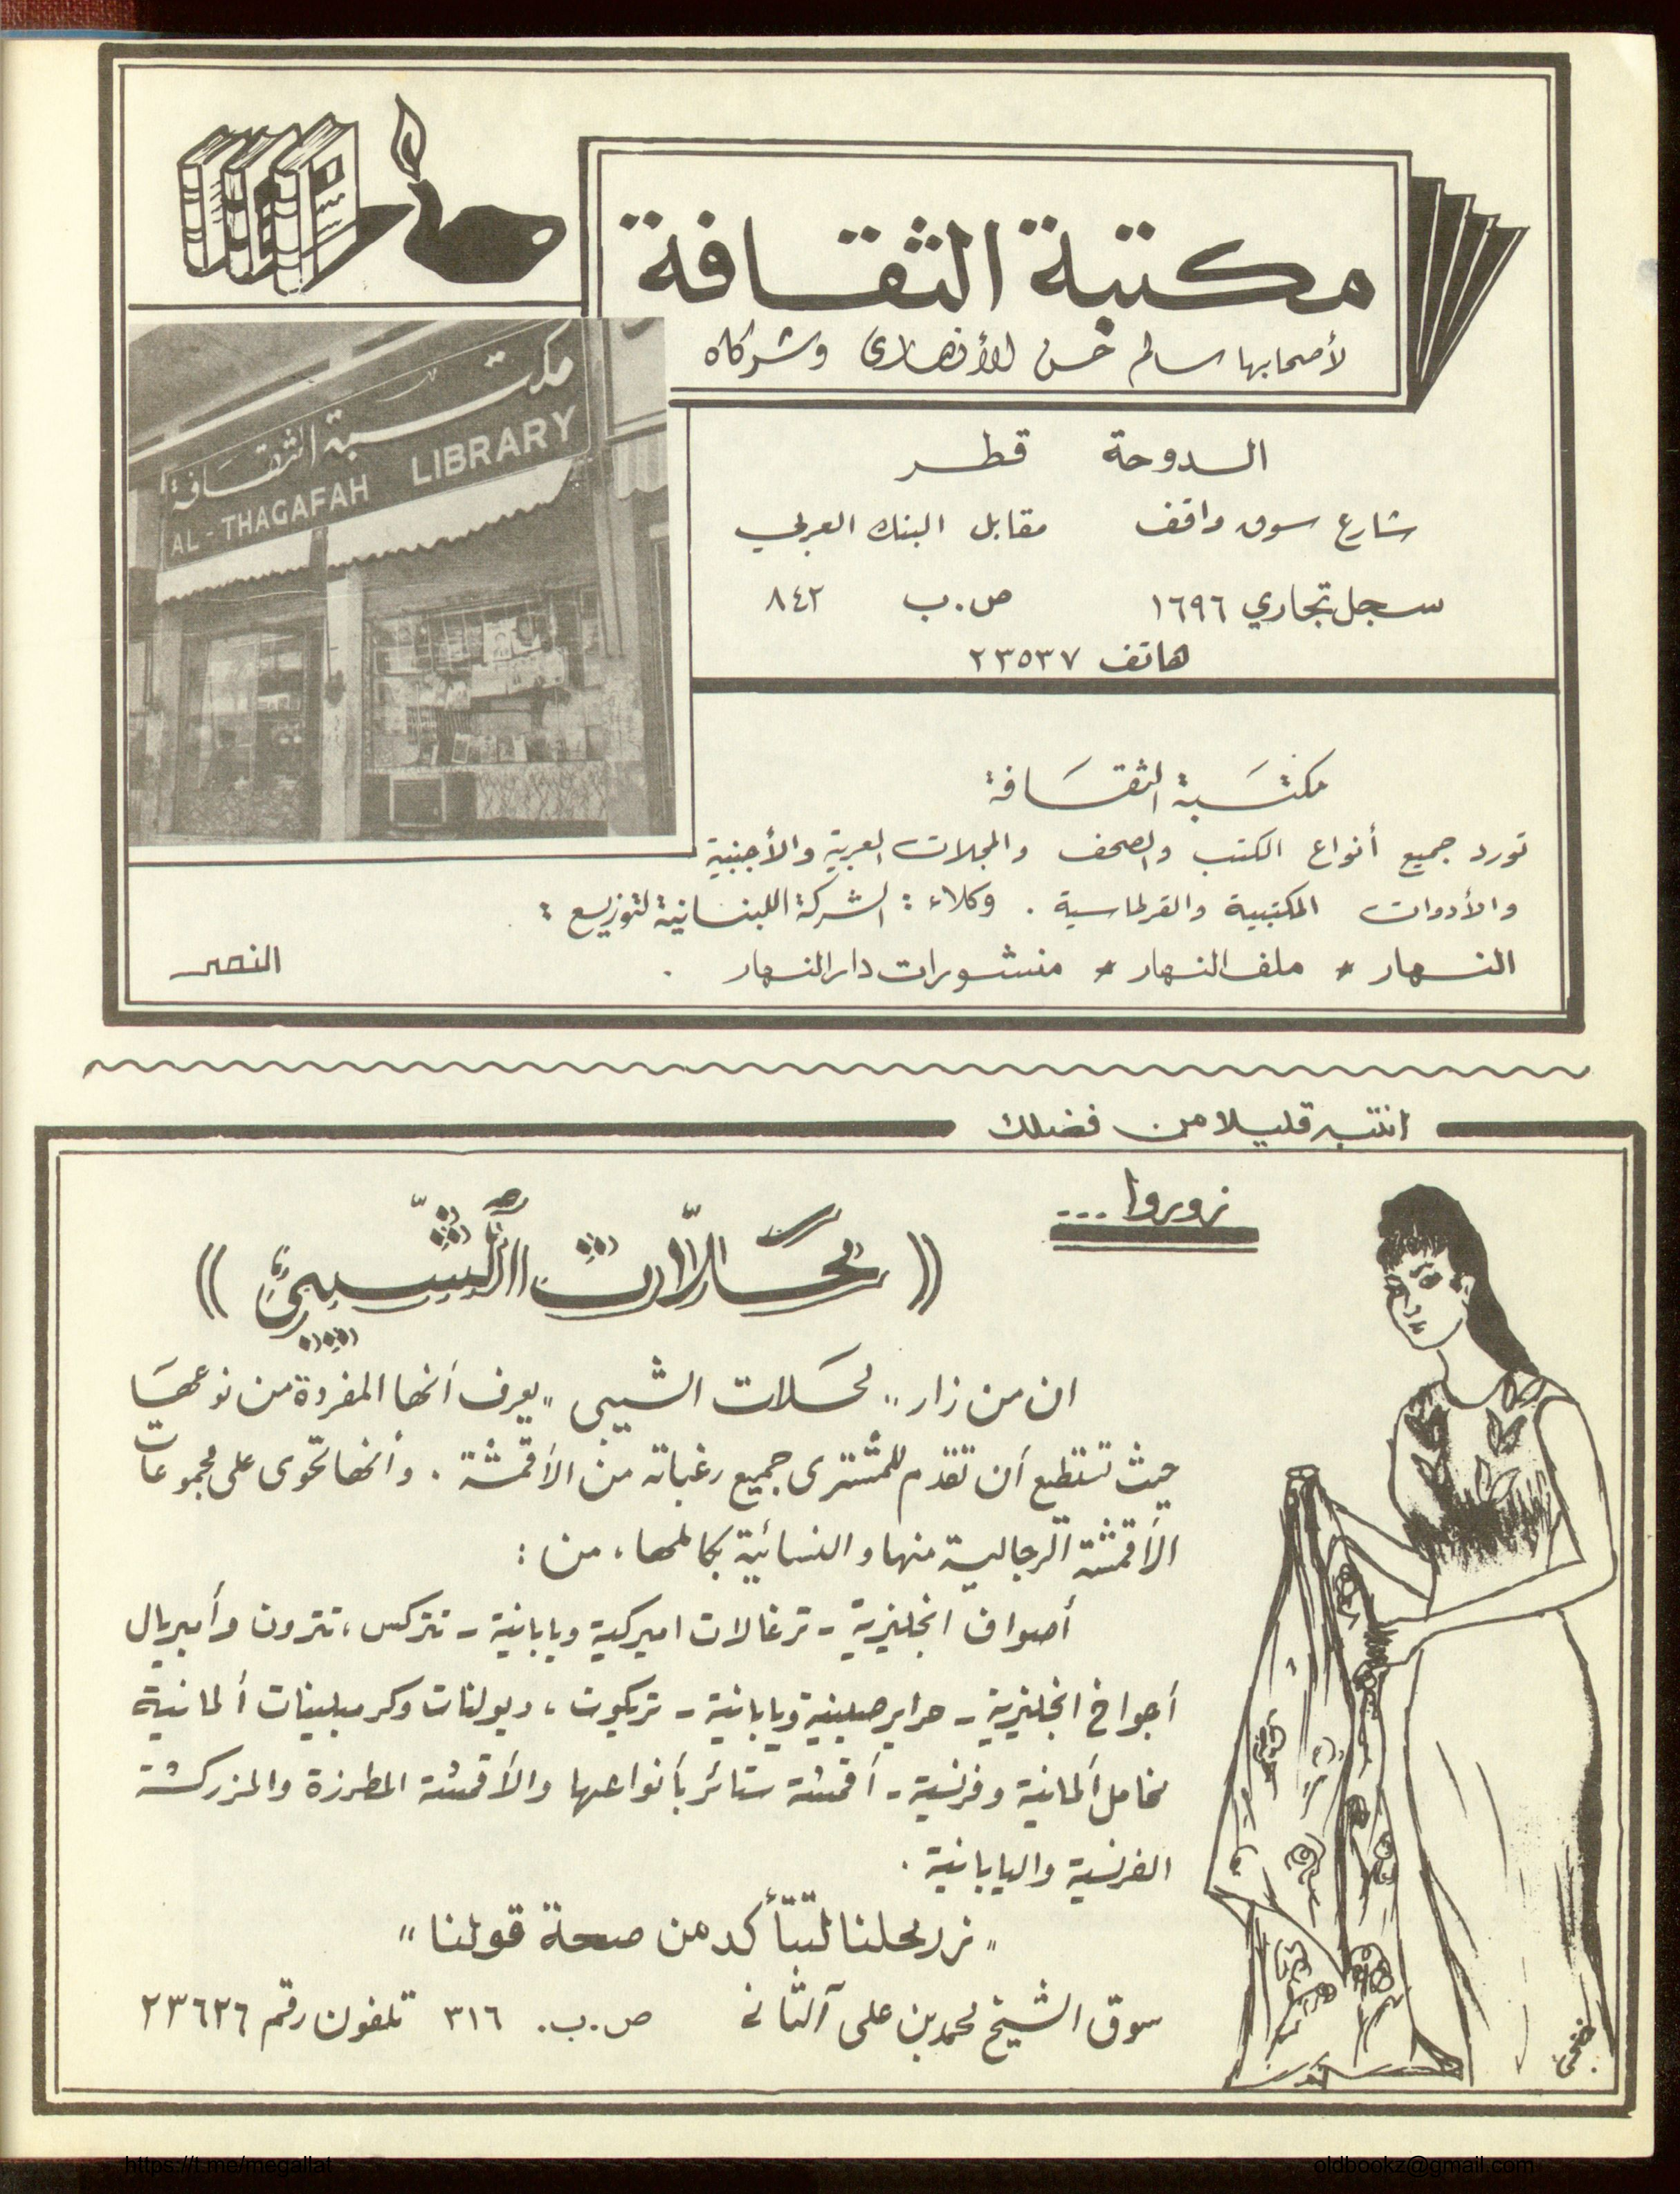 مكتبة الثقافة
لأصحابها سالم حسن الأنصاري وشركاه
مكتبة الثقافة
AL - THAGAFAH LIBRARY
الدوحة قطر
شارع سوق واقف مقابل البنك العربي
سجل تجاري ١٦٩٦ ص.ب ٨٤٢
هاتف ٢٣٥٣٧
مكتبة الثقافة
تورد جميع أنواع الكتب والصحف والمجلات العربية والأجنبية
والأدوات المكتبية والقرطاسية . وكلاء : الشركة اللبنانية لتوزيع :
النهار * ملف النهار * منشورات دار النهار .
النصر
انتبه قليلا من فضلك
زوروا ...
(( محلات الشيبي ))
ان من زار ,, محلات الشيبى ,, يعرف أنها المفردة من نوعها
حيث تستطيع أن تقدم للمشترى جميع رغباته من الأقمشة . وأنها تحوى على مجموعات
الأقمشة الرجالية منها والنسائية بكاملها، من :
أصواف انجليزية - ترغالات اميركية ويابانية - تتركس ، تترون وأمبريال
أجواخ انجليزية - حراير صينية ويابانية - تريكوت ، وبولنات وكرمبلينات ألمانية
مخامل ألمانية وفرنسية - أقمشة ستائر بأنواعها والأقمشة المطرزة والمزركشة
الفرنسية واليابانية .
" زر محلنا لتتأكد من صحة قولنا "
سوق الشيخ محمد بن على آل ثاني ص.ب. ٣١٦ تلفون رقم ٢٣٦٢٦
فتحي
https://t.me/megallat
oldbookz@gmail.com